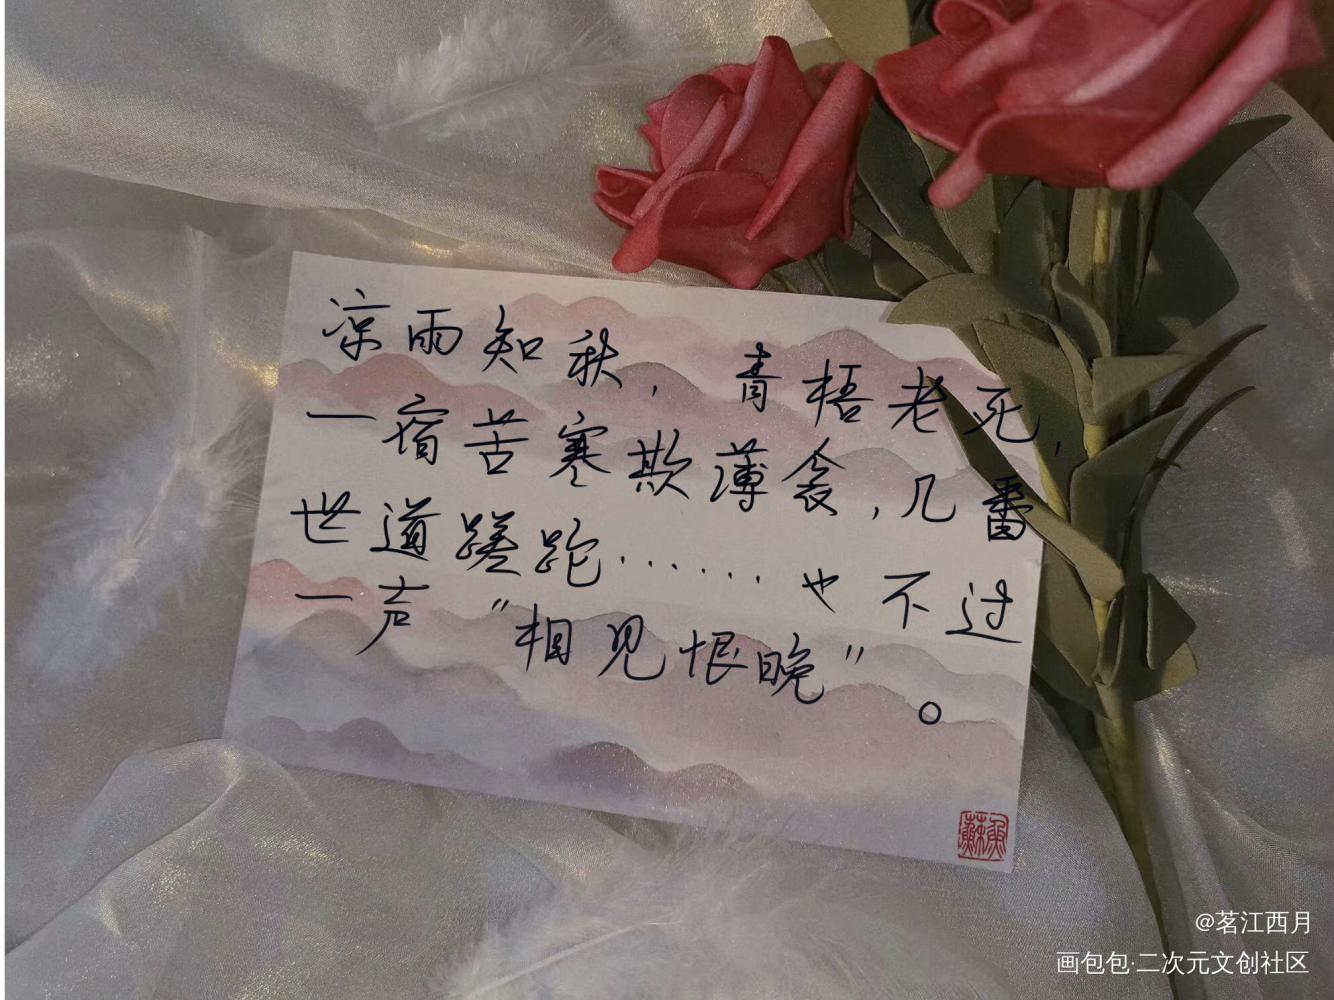 凉雨知秋，青梧老死，
一宿苦寒欺薄衾，几番
世道蹉跎……也不过
一声“相见恨晚”。
@茗江西月
画包包·二次元文创社区